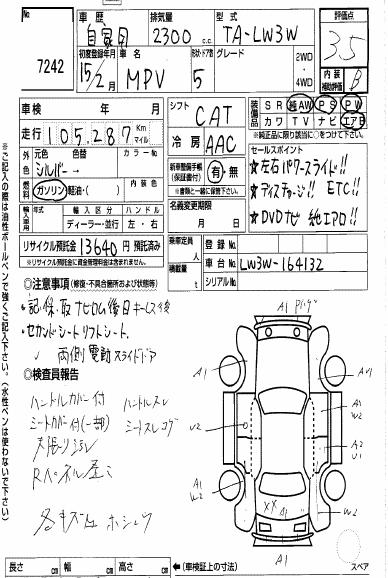 No.
7242
車歴
自家用
排気量
2300 c.c.
型式
TA-LW3W
評価点
3.5
初度登録年月
15/2 月
車名
MPV
形状・ドア数
5
グレード
2WD
4WD
内装
補助評価
B
車検 年 月
シフト
CAT
装備品
SR 純AW PS PW
カワ TV ナビ エアB
※純正品に限り該当に○をつけて下さい。
走行
105,287 Km
マイル
冷房
AAC
セールスポイント
★左右パワースライド!!
★ディスチャージ!! ETC!!
★DVDナビ 純エアロ!!
外色
元色 色替
シルバー →
カラーNo.
燃料
ガソリン・軽油・( )
内装色
新車整備手帳
(保証書付)
有・無
(書類と一緒に保管下さい)
輸入車用
年式
輸入区分
ディーラー・並行
ハンドル
左・右
名義変更期限
月 日
リサイクル預託金 13640 円 預託済み
※リサイクル預託金に資金管理料金は含まれません。
乗車定員
人
積載量
t
登録No.
車台No. LW3W-164132
シリアルNo.
◎注意事項 (修復・不具合箇所および状態)
・記・保・取 ナビロム後日 キーレス1ヶ
・セカンドシート リフトシート
両側電動スライドドア
◎検査員報告
ハンドルカバー付 ハンドルスレ
シートカバー付(一部) シートスレコゲ
天張りシミ
Rパネル歪ミ
各キズ凹
A1
A1
U2
A1
W2
A1
W2
A2
U1
W2
XX A1
A1
スペア
長さ cm 幅 cm 高さ cm ←(車検証上の寸法)
※ご記入の際は油性ボールペンで強くご記入下さい。(水性ペンは使わないで下さい)